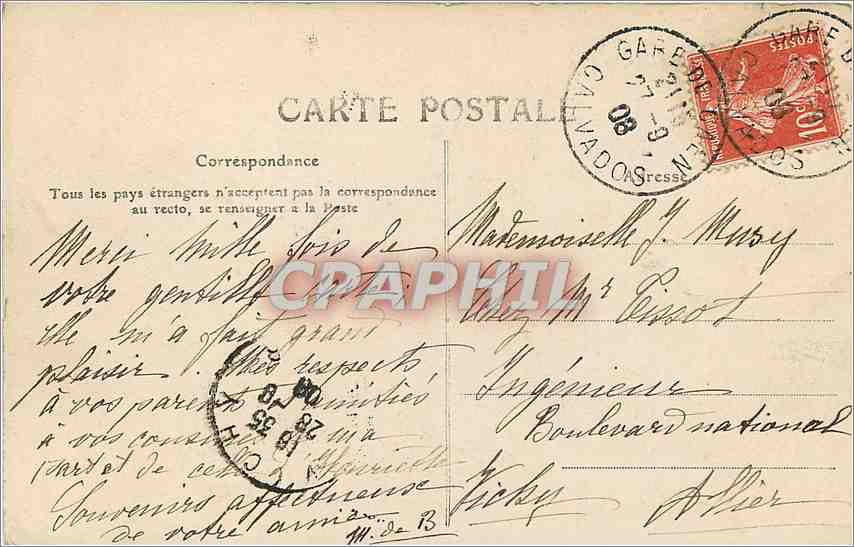 CARTE POSTALE
Correspondance
Tous les pays étrangers n'acceptent pas la correspondance
au recto, se renseigner a la Poste
Merci mille fois de
votre gentille carte,
elle m'a fait grand
plaisir. Mes respects
à vos parents amitiés
à vos cousines ma
part et de celle d'Henriette
Souvenirs affectueux
de votre amie
M. de B
CRAPHIL
GARE DE CAEN
CALVADOS
27 -9
08
GARE DE
CALVADOS
08
POSTES
10c
Adresse
Mademoiselle J. Mury
Chez Mr Tissot
Ingénieur
Boulevard national
Vichy Allier
VICHY
18 35
28 -9
08